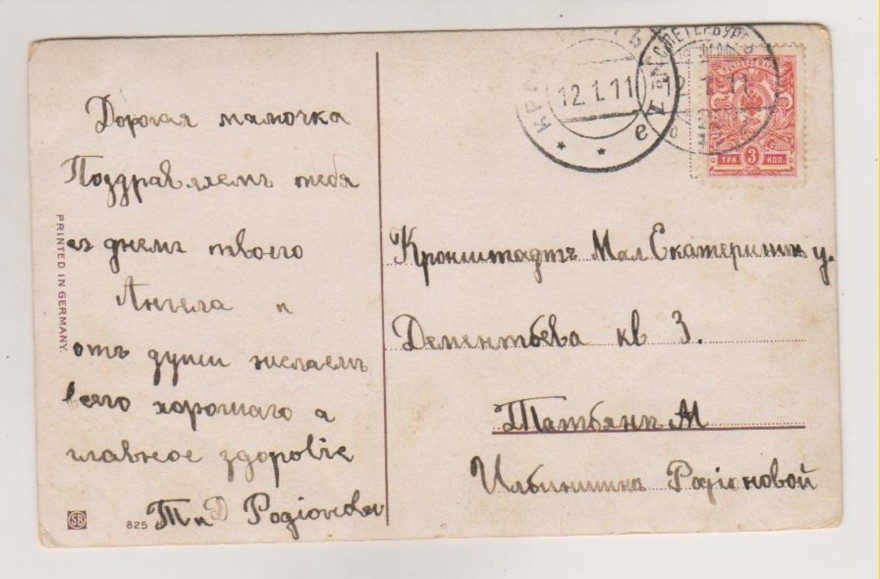 Дорогая мамочка
Поздравляемъ тебя
съ днемъ твоего
Ангела и
отъ души желаемъ
всего хорошаго а
главное здоровіе
Т и Д Родіоновы
PRINTED IN GERMANY.
SB
825
12.1.11
е
С.ПЕТЕРБУРГЪ
12.1.11
ТРИ 3 КОП.
Кронштадтъ Мал Екатеринин у.
Дементьева кв 3.
Татьянѣ М
Ильинишнѣ Родіоновой